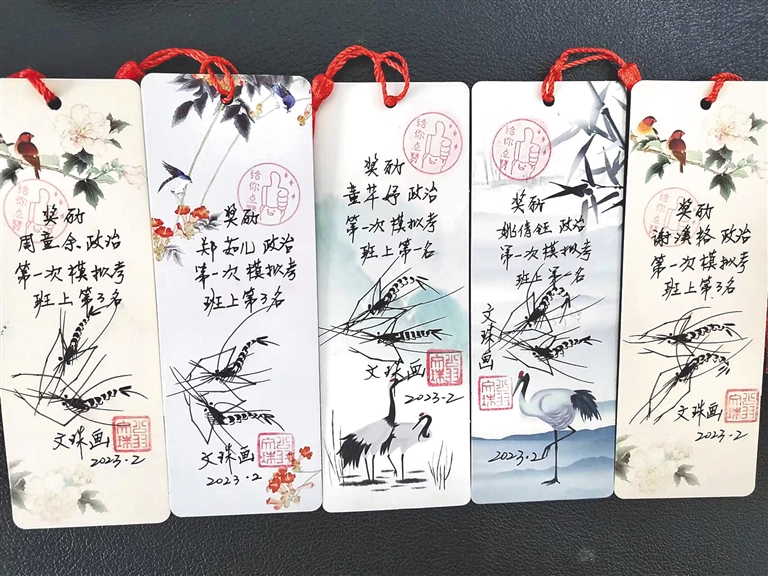 给你点赞
奖励
周 余 政治
第一次模拟考
班上第3名
文珠画
2023.2
给你点赞
奖励
郑茹儿 政治
第一次模拟考
班上第3名
文珠画
2023.2
给你点赞
奖励
童芊妤 政治
第一次模拟考
班上第一名
文珠画
2023.2
给你点赞
奖励
姚倩钰 政治
第一次模拟考
班上第一名
文珠画
2023.2
给你点赞
奖励
谢溪格 政治
第一次模拟考
班上第3名
文珠画
2023.2